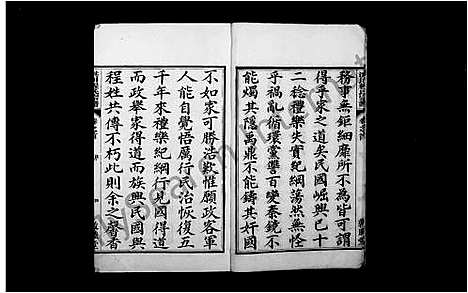 務事無鉅細靡所不為皆可謂
得乎家之道矣民國崛興已十
二稔禮樂失實紀綱蕩然無怪
乎禍亂循環黨讐百變秦鏡不
能燭其隱禹鼎不能鑄其奸國
不如家可勝浩歎惟願政客軍
人能自覺悟厲行民治恢復五
千年來禮樂紀綱行見國得道
而政舉家得道而族興民國與
程姓共傳不朽此則余之馨香